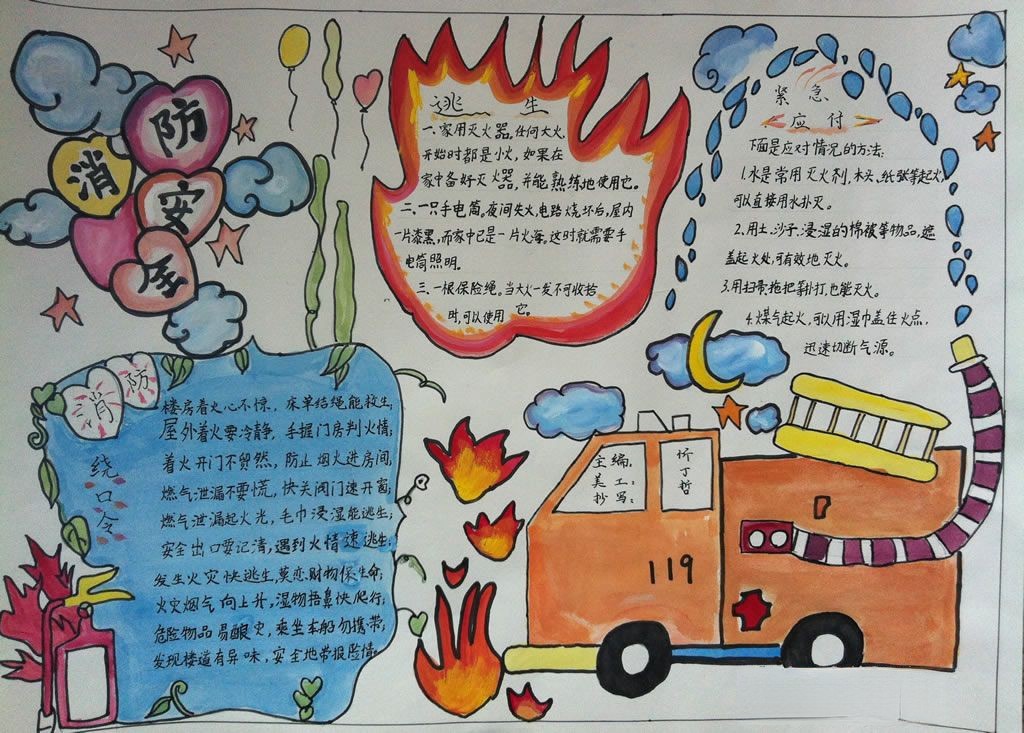 消防安全
逃生
一、家用灭火器。任何大火,
开始时都是小火,如果在
家中备好灭火器,并能熟练地使用它。
二、一只手电筒。夜间失火,电路烧坏后,屋内
一片漆黑,而家中已是一片火海,这时就需要手
电筒照明。
三、一根保险绳。当大火一发不可收拾
时,可以使用它。
紧急
应付
下面是应对情况的方法:
1.水是常用灭火剂,木头、纸张等起火,
可以直接用水扑灭。
2.用土、沙子、浸湿的棉被等物品,遮
盖起火处,可有效地灭火。
3.用扫帚、拖把等扑打,也能灭火。
4.煤气起火,可以用湿巾盖住火点,
迅速切断气源。
消防
绕口令
楼房着火心不惊,床单结绳能救生;
屋外着火要冷静,手握门房判火情;
着火开门不贸然,防止烟火进房间,
燃气泄漏不要慌,快关阀门速开窗;
燃气泄漏起火光,毛巾浸湿能逃生;
安全出口要记清,遇到火情速逃生;
发生火灾快逃生,莫恋财物保生命;
火灾烟气向上升,湿物捂鼻快爬行;
危险物品易酿灾,乘坐车船勿携带;
发现楼道有异味,安全地带报险情。
主编:
美工:
抄写:
价
丁
哲
119